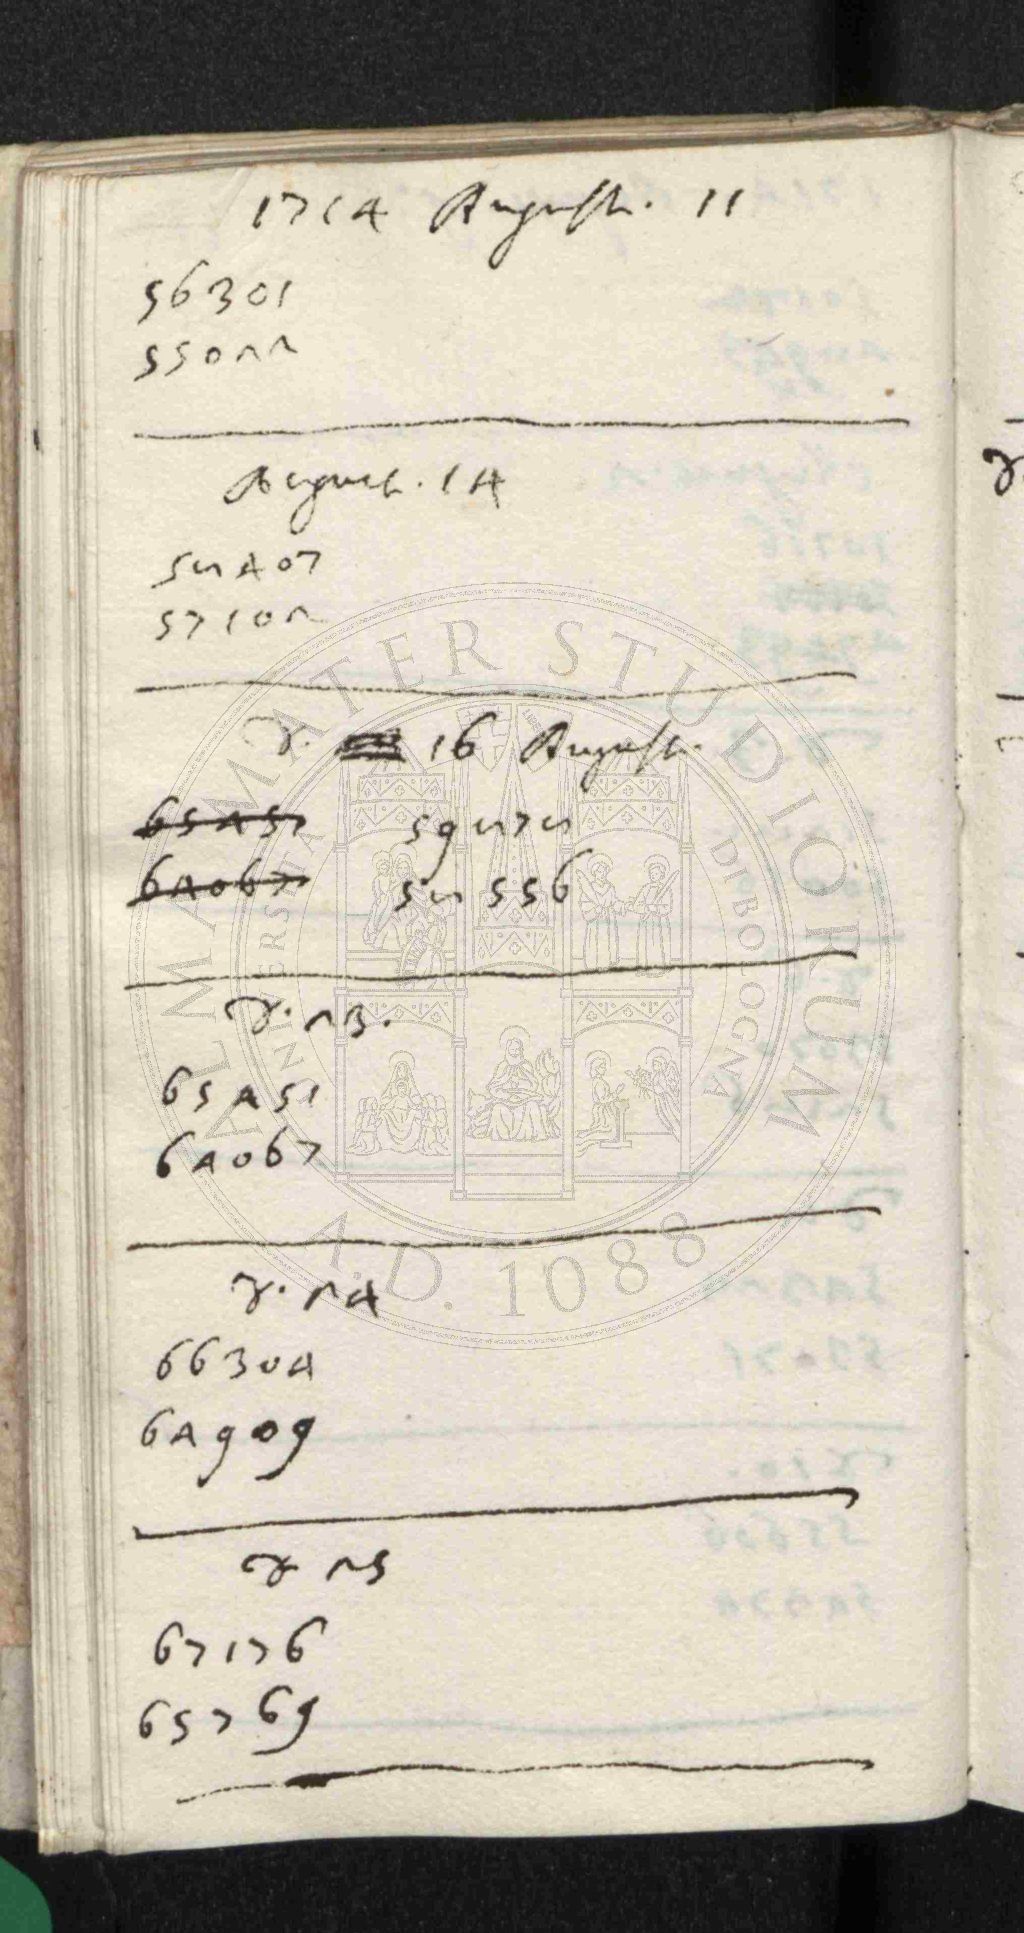 1714 August. 11
56301
55022
August. 14
58407
57102
d. 16 August.
65451 59878
64067 58556
d. 23.
65451
64067
d. 24
66304
64909
d 25
67176
65769
ALMA MATER STUDIORUM
A.D. 1088
UNIVERSITÀ DI BOLOGNA